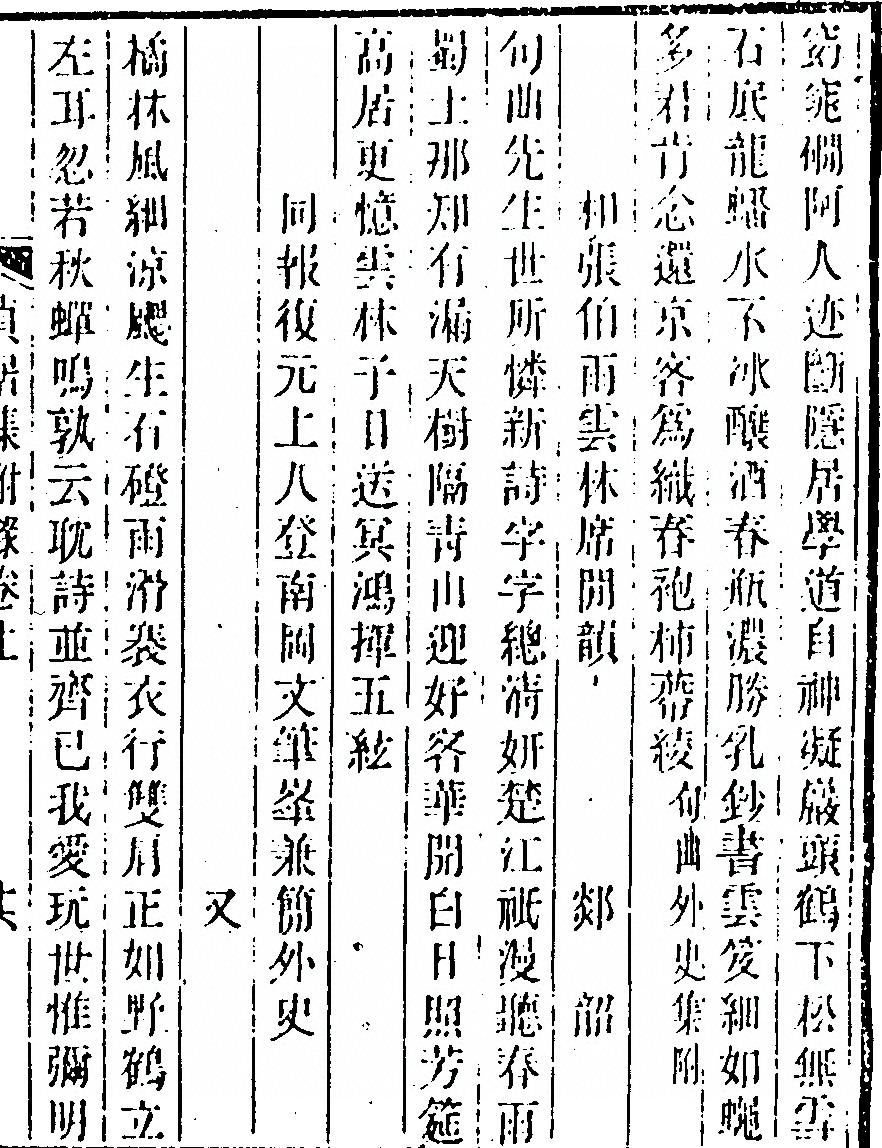 窈窕僩阿人迹斷隱居學道自神凝巖頭鶴下松無雪
石底龍蟠水不冰釀酒春瓶濃勝乳鈔書雲笈細如蠅
多君肯念還京客爲織春袍柿蔕綾句曲外史集附
和張伯雨雲林席閒韻 郯韶
句曲先生世所憐新詩字字總淸妍楚江祇漫聽春雨
蜀土那知有漏天樹隔靑山迎好客華開白日照芳筵
高居更憶雲林子目送冥鴻揮五絃
同報復元上人登南岡文筆峯兼簡外史
又
橘林風細涼颸生石磴雨滑裊衣行雙肩正如野鶴立
左耳忽若秋蟬鳴孰云耽詩並齊已我愛玩世惟彌明
貞居集附錄卷上